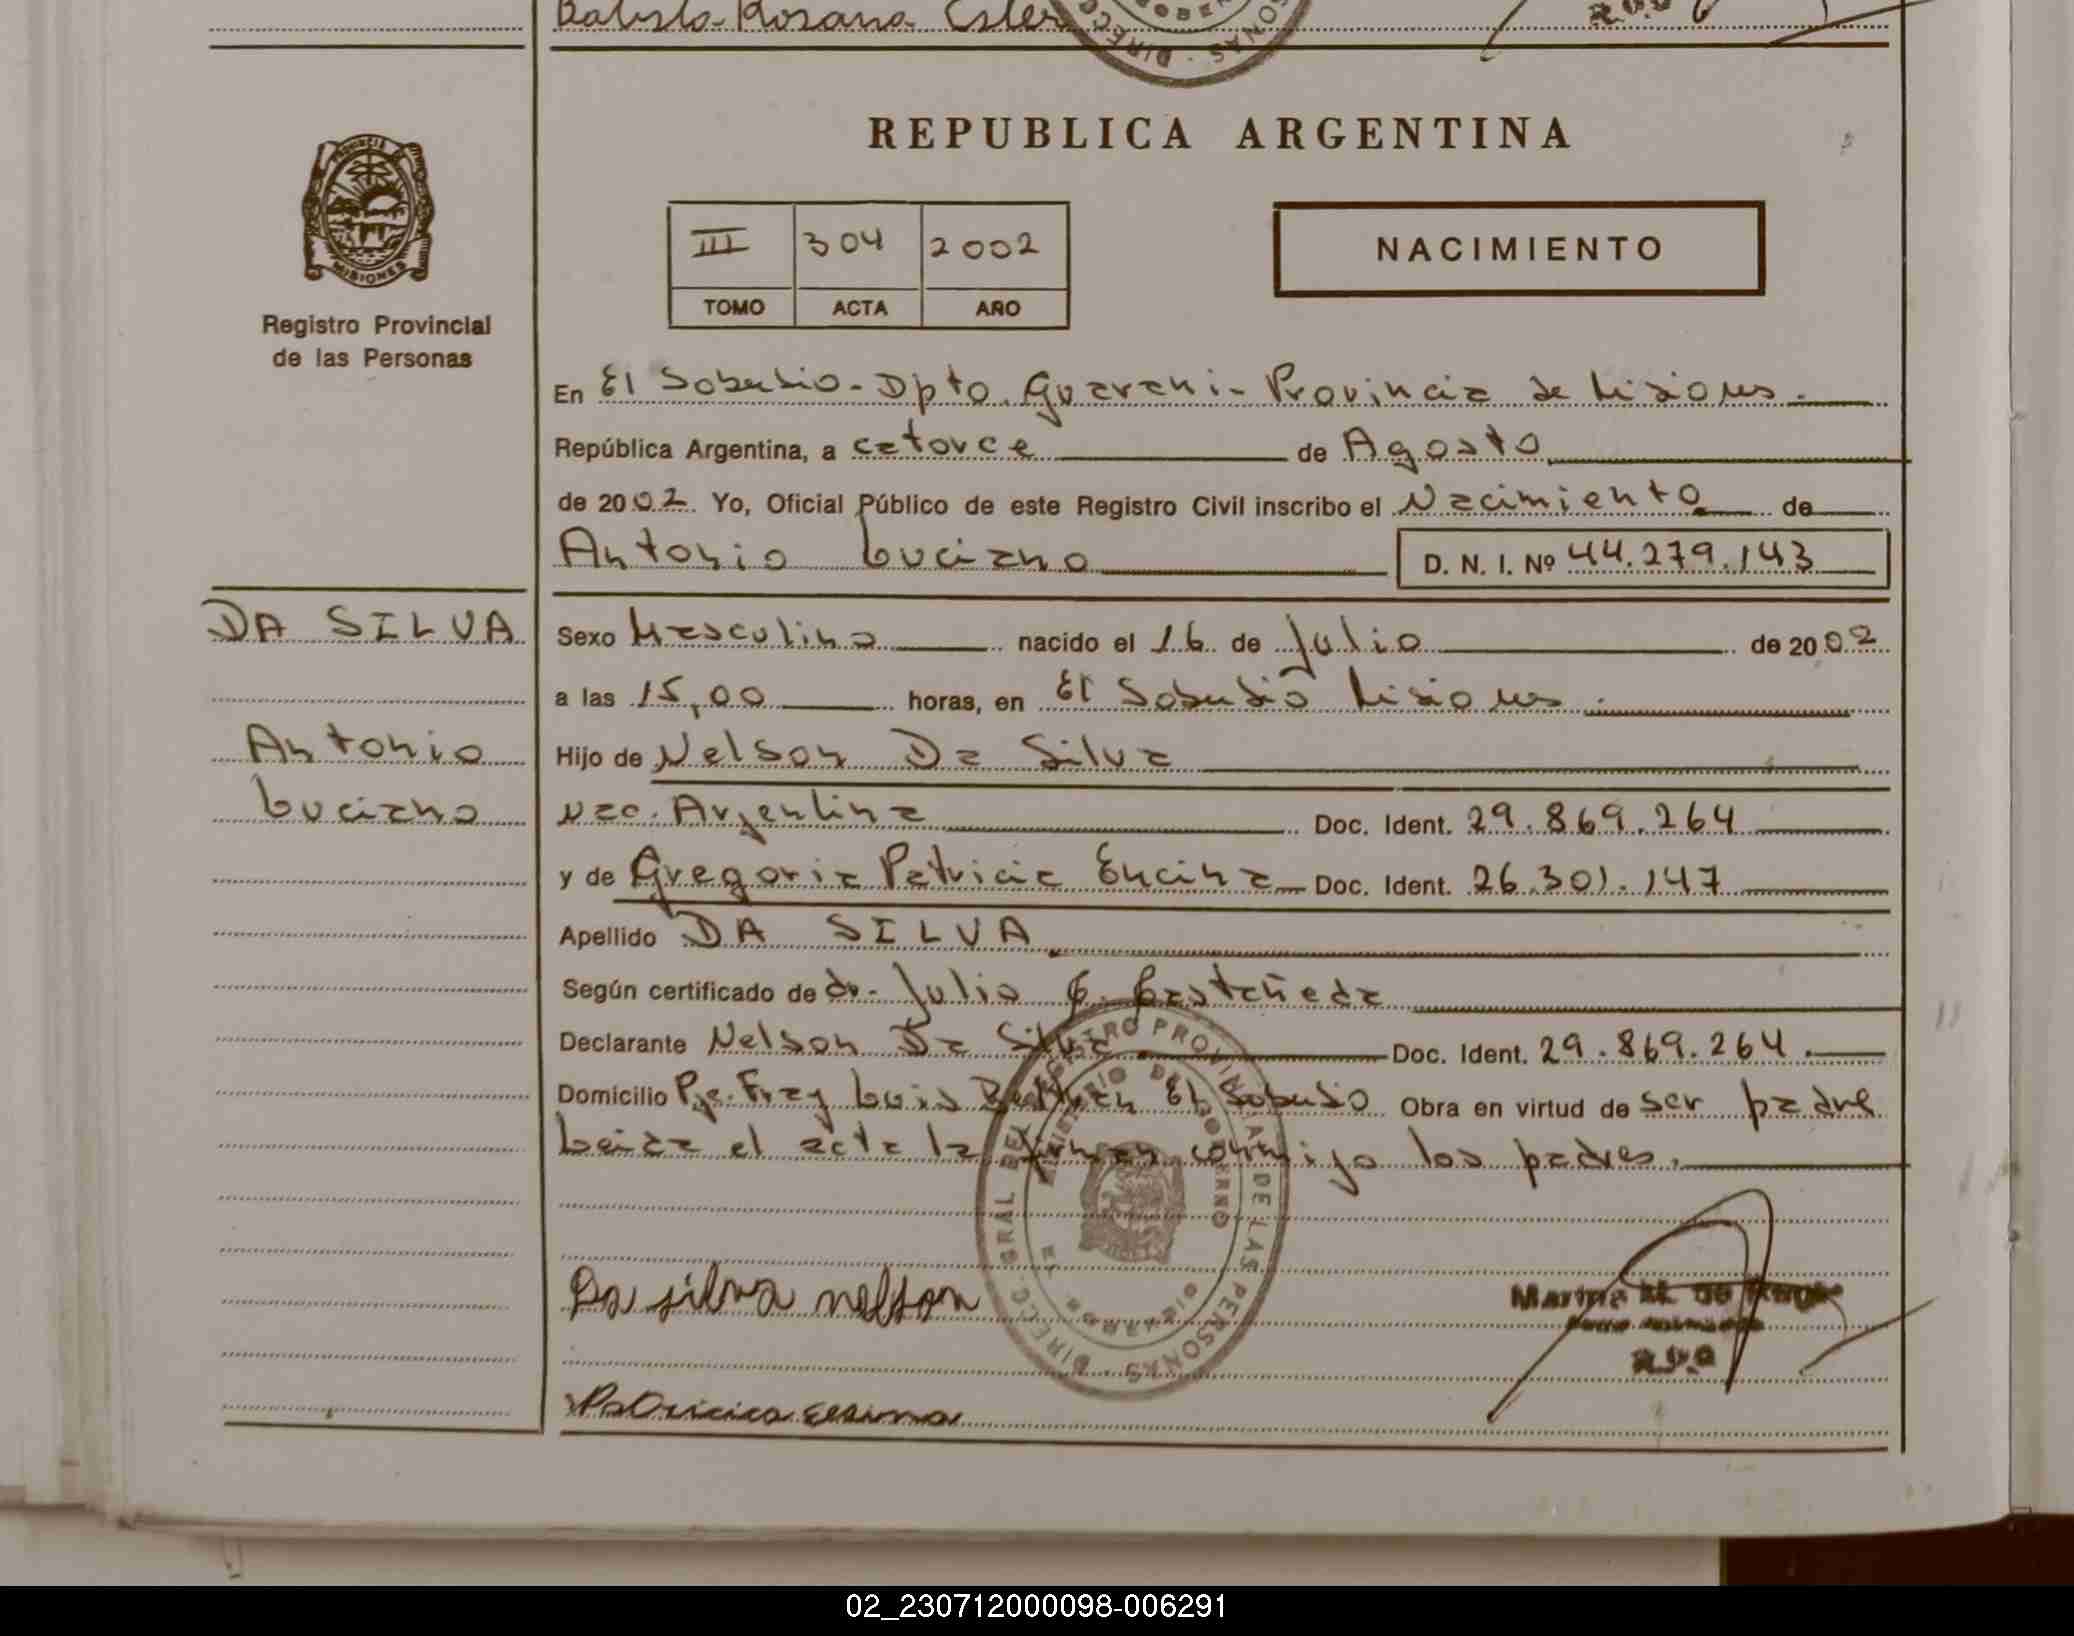 Batista Rosana Ester
REPUBLICA ARGENTINA
III 304 2002
TOMO ACTA AÑO
NACIMIENTO
MISIONES
Registro Provincial
de las Personas
En El Soberbio - Dpto. Guarani - Provincia de Misiones.
República Argentina, a catorce de Agosto
de 2002 Yo, Oficial Público de este Registro Civil inscribo el Nacimiento de
Antonio Luciano D. N. I. Nº 44.279.143
DA SILVA
Antonio
Luciano
Sexo Masculino nacido el 16 de Julio de 2002
a las 15,00 horas, en El Soberbio Misiones.
Hijo de Nelson Da Silva
Nac. Argentina Doc. Ident. 29.869.264
y de Gregoria Patricia Encina Doc. Ident. 26.301.147
Apellido DA SILVA
Según certificado de dr. Julio G. Castañeda
Declarante Nelson Da Silva Doc. Ident. 29.869.264.
Domicilio Pje. Fray Luis Beltran El Soberbio Obra en virtud de ser padre
Leida el acta la firman conmigo los padres.
DIRECC. GRAL DEL REGISTRO PROVINCIAL DE LAS PERSONAS
MINISTERIO DE GOBIERNO
Da silva nelson
Patricia Encina
02_230712000098-006291